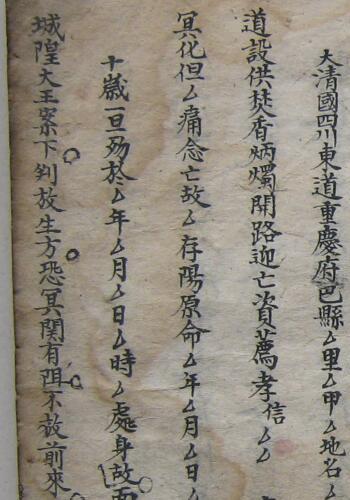 大清國四川東道重慶府巴縣厶里甲厶地名厶
道設供焚香炳燭開路迎亡資薦孝信厶厶
冥化但厶痛念亡故厶存陽原命厶年厶月厶日厶
十歲一旦歿於厶年厶月厶日厶時厶處身故
城隍大王案下判放生方恐冥関有阻不放前來